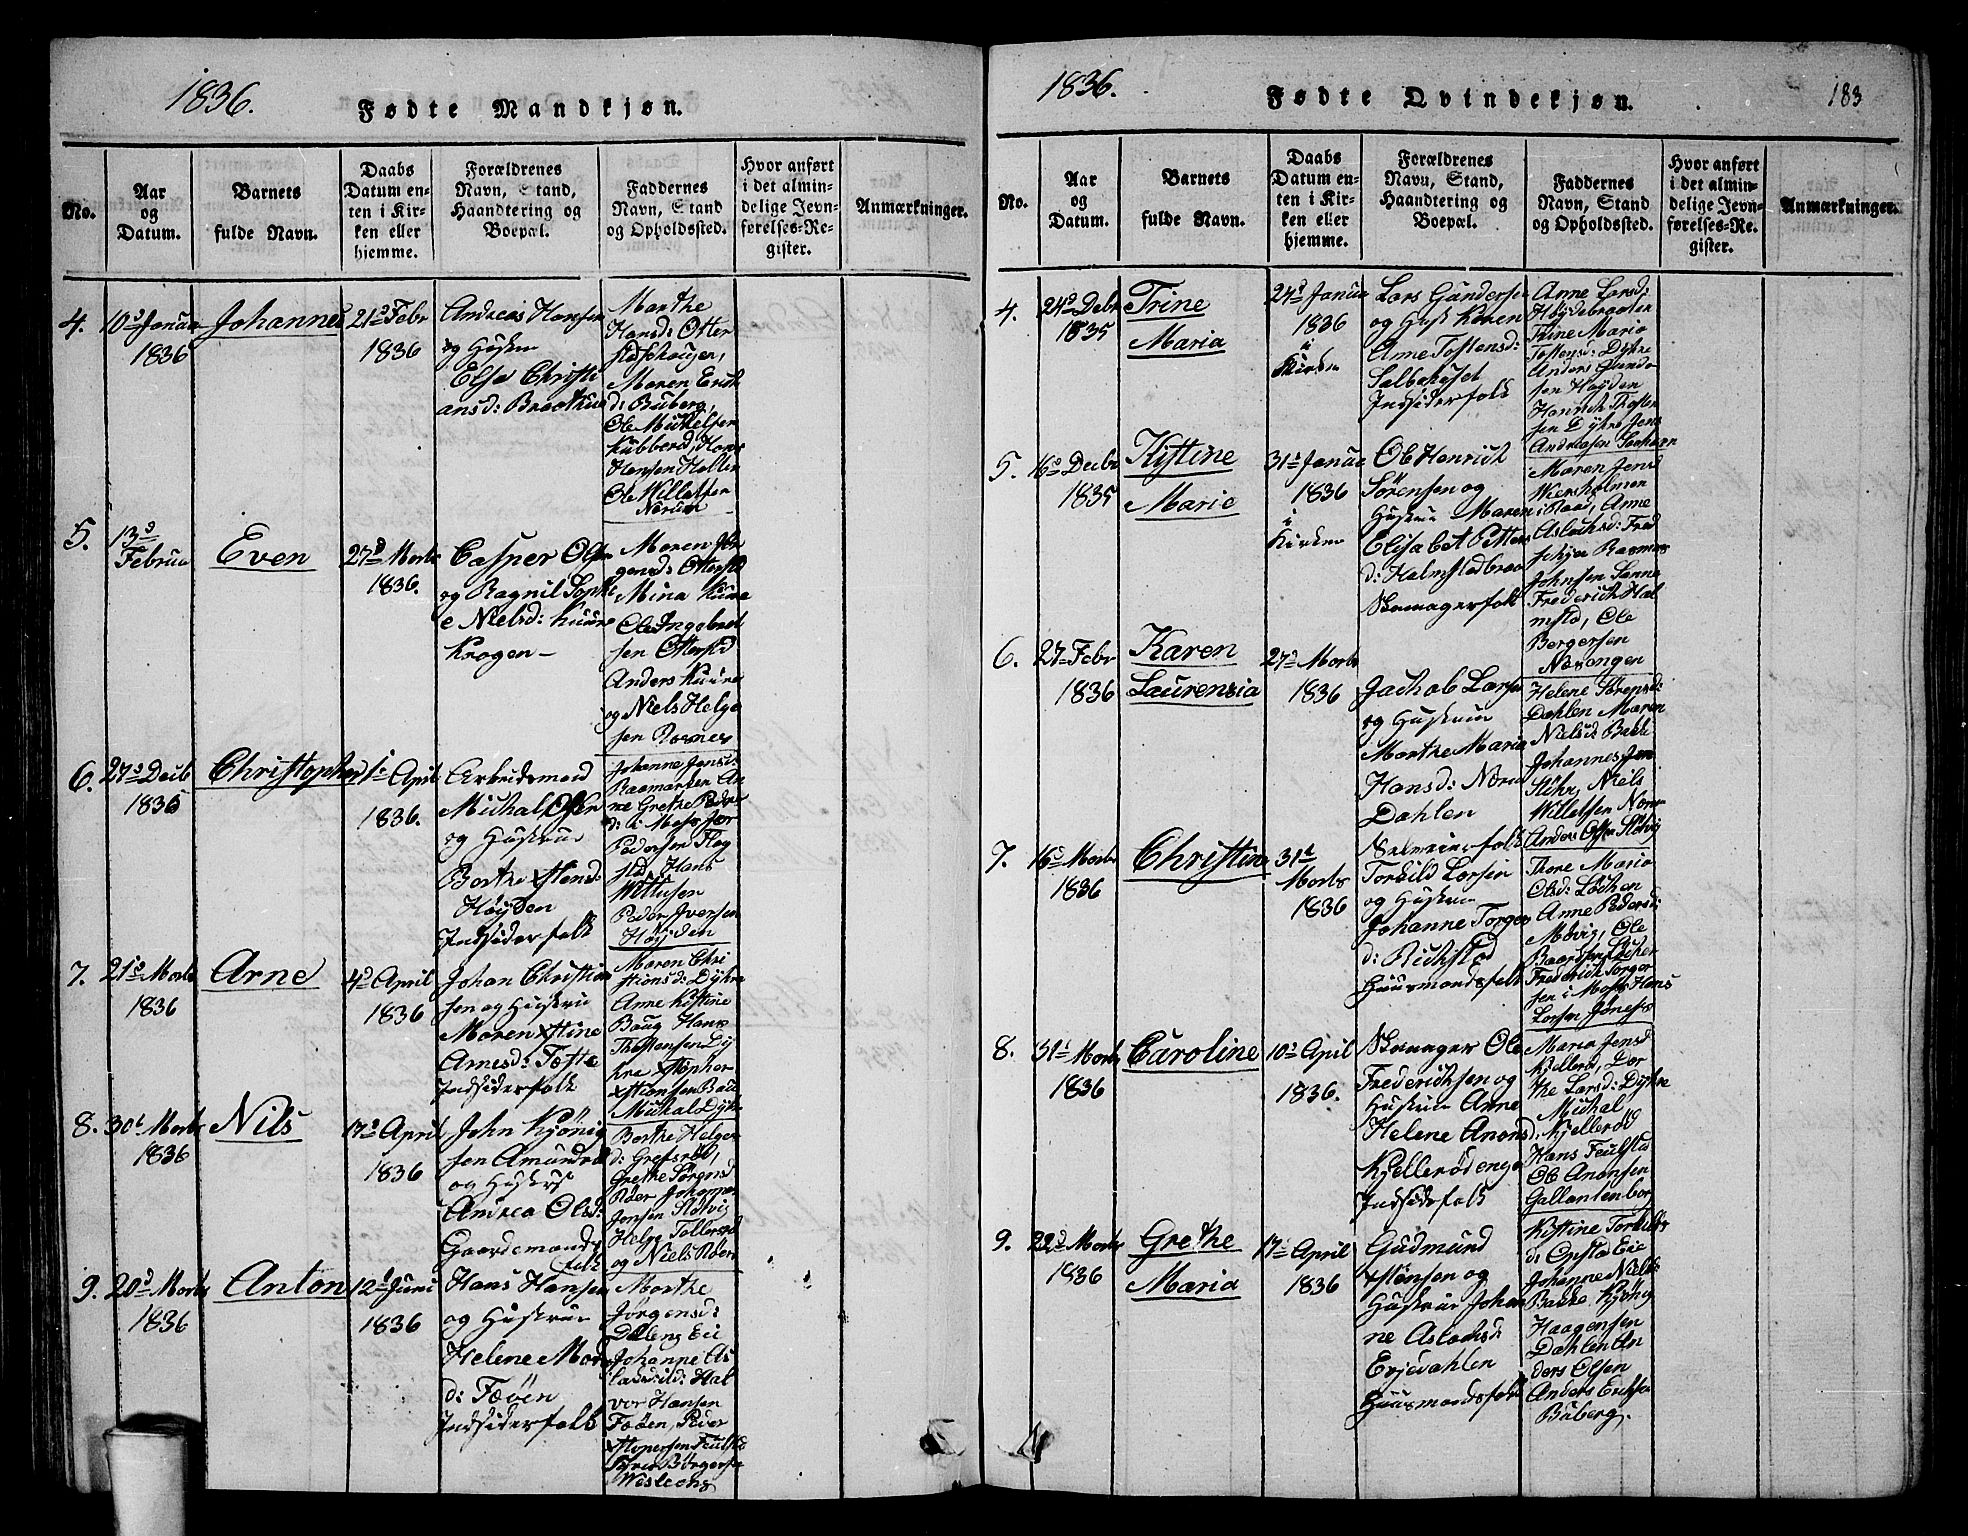 1836.
Fødte Mandkjøn.
No.
Aar
og
Datum.
Barnets
fulde Navn.
Daabs
Datum en-
ten i Kir-
ken eller
hjemme.
Forældrenes
Navn, Stand,
Haandtering og
Boepæl.
Faddernes
Navn, Stand
og Opholdssted.
Hvor anført
i det almin-
delige Jevn-
førelses-Re-
gister.
Anmærkninger.
4.
10de Janua
1836
Johannes
21de Febr
1836
Andreas Hansen
og Hustrue
Else Christi
ansd: Braatkue
Marthe
Hansd:
Maren Erik
d: Buberg,
Ole Mikkelsen
Hans
Hansen
Ole Willetsen
Norum
5.
13de
Februa
Even
27de Marts
1836.
Casper Olsen
og Ragnil Sophi
e Nielsd: Kuure
Krogen
Maren Jør
gensd: Ottersld
Mina Kure
Ole Ingebret
sen Ottersld
Anders Kuure
og Niels Helge
sen Rosnes
6.
27de Decb
1835
Christopher
1: April
1836.
Arbeidsmand
Michal Olsen
og Hustrue
Berthe Xstensd:
Høyden
Indsiderfolk
Johanne Jensd:
Raamarken An
ne Grethe Peders
d: i Moss
Pedersen
Hans
Peder Iversen
Høyden
7.
21de Marts
1836
Arne
4de April
1836
Johan Christian
sen og Hustrue
Maren Xstine
Arnesd: Tofte
Indsiderfolk
Maren Chri
stiansd: Dykre
Anne Kistine
Baug Hans
Thostensen Dy
kre Xstopher
Xstiansen Baug
Michal Dykre
8.
30te Marts
1836
Nils
17de April
1836
John Kjönig
sen Amundrød
og Hustrue
Andrea Olsd:
Gaardemands
folk
Berthe Helges
d: Grefsrød,
Grethe Sørensd
Røer Johannes
Jensen Slotvig
Helge Tollersrød
og Niels Røer
9.
20de Marts
1836
Anton
12te Juni
1836
Hans Hansen
og Hustrue
Helene Mor
d: Faøen
Indsiderfolk
Marthe
Jørgensd:
Daleng Eie
Johanne As
Hal
vor Hansen
Faøen, Peder
Xstopersen
Børgersen
1836.
Fødte Qvindekjøn.
183
No.
Aar
og
Datum.
Barnets
fulde Navn.
Daabs
Datum en-
ten i Kir-
ken eller
hjemme.
Forældrenes
Navn, Stand,
Haandtering og
Boepæl.
Faddernes
Navn, Stand
og Opholdssted.
Hvor anført
i det almin-
delige Jevn-
førelses-Re-
gister.
Anmærkninger.
4.
24de Debr
1835
Trine
Maria
24de Janua
1836
i
Kirken
Lars Gundersen
og Hust Karen
Anne Tostensd:
Salbehuset
Indsiderfolk
Anne Larsd:
Høydebraaten
Trine Maria
Tostensd: Dykre
Anders Gunder
sen Høyden
Henrich Thosten
sen Dykre Jens
Andreasen
5.
16de Decbr
1835
Kistine
Marie
31te Janua
1836
i
Kirken
Ole Henrich
Sørensen og
Hustrue Maren
Elisabet Petters
d: Halmstadbraa
Skomagerfolk
Maren Jensd
Wiersholmen
i Raad, Anne
Aslachsd: Fred
Rasmus
Johnsen Sanne
Frederich Hal
mstd, Ole
Borgersen
Nøsengen
6.
27de Febr
1836
Karen
Laurensia
27de Marts
1836
Jachob Larsen
og Hustrue
Marthe Maria
Hansd: Norre
Dahlen
Helene Sørensd:
Dahlen Maren
Nielsd: Bakke
Johannes Jen
Niels
Willetsen Nor
Anders Olsen Slotvig
7.
16de Marts
1836
Christine
31te
Marts
1836
Torkild Larsen
og Hustrue
Johanne Torger
d: Rickstad
Huusmandsfolk
Thore Maria
Olsd:
Anne Pedersd:
Møvig, Ole
Baardsen
Frederich Torger
sen i Moss Hans
Larsen
8.
31te Marts
1836
Caroline
10de April
1836.
Skomager Ole
Frederichsen og
Hustrue Anne
Helene Anonsd:
Kjellerødenge
Indsiderfolk
Maria Jensd
Kjellerød, Dor
the Larsd: Dykre
Michal
Kjellerød
Hans
Ole Anonsen
Gallantenborg
9.
22de Marts
1836
Grethe
Maria
17de April
1836
Gudmund
Xstensen og
Hustrue Johan
ne Aslachsd
Evjedahlen
Huusmandsfolk
Kistine Torkilds
d: Eie
Johanne Nielsd
Bakke,
Haagensen
Dahlen An
ders Olsen
Anders Eriksen
Buberg.